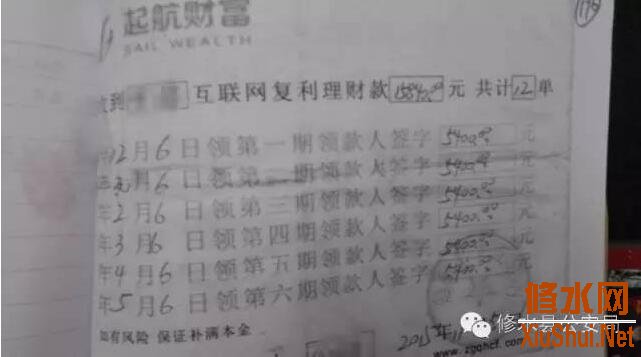 起航财富
SAIL WEALTH
收到 互联网复利理财款 15840.00 元 共计 12 单
12月6日领第一期领款人签字 5400.00 元
元月6日领第二期领款人签字 5400.00 元
年2月6日领第三期领款人签字 5400.00 元
年3月6日领第四期领款人签字 5400.00 元
年4月6日领第五期领款人签字 5400.00 元
年5月6日领第六期领款人签字 5400.00 元
如有风险 保证补满本金
2015年11
修水县公安局
修水网
XiuShui.Net